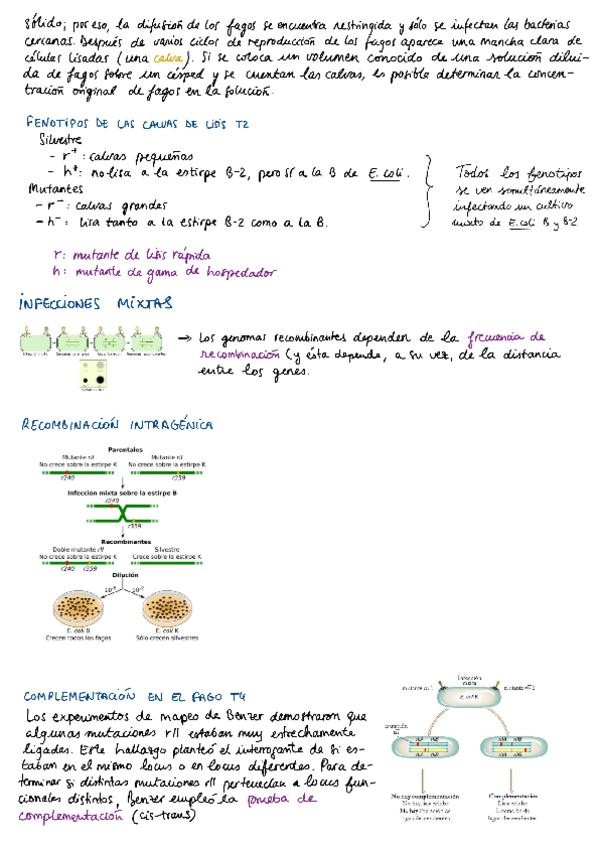 sólido; por eso, la difusión de los fagos se encuentra restringida y sólo se infectan las bacterias
cercanas. Después de varios ciclos de reproducción de los fagos aparece una mancha clara de
células lisadas (una calva). Si se coloca un volumen conocido de una solución dilui-
da de fagos sobre un césped y se cuentan las calvas, es posible determinar la concen-
tración original de fagos en la solución.
FENOTIPOS DE LAS CALVAS DE LISIS T2
Silvestre
- r+: calvas pequeñas
- h+: no lisa a la estirpe B-2, pero sí a la B de E. coli.
Mutantes
- r-: calvas grandes
- h-: lisa tanto a la estirpe B-2 como a la B.
Todos los fenotipos
se ven simultáneamente
infectando un cultivo
mixto de E. coli B y B-2
r: mutante de lisis rápida
h: mutante de gama de hospedador
INFECCIONES MIXTAS
→ Los genomas recombinantes dependen de la frecuencia de
recombinación (y ésta depende, a su vez, de la distancia
entre los genes.
RECOMBINACIÓN INTRAGÉNICA
Parentales
Mutante rII Mutante rII
No crece sobre la estirpe K No crece sobre la estirpe K
r240 r359
Infección mixta sobre la estirpe B
r240
r359
Recombinantes
Doble mutante rII Silvestre
No crece sobre la estirpe K Crece sobre la estirpe K
r240 r359
Dilución
E. coli B E. coli K
Crecen todos los fagos Sólo crecen silvestres
COMPLEMENTACIÓN EN EL FAGO T4
Los experimentos de mapeo de Benzer demostraron que
algunas mutaciones rII estaban muy estrechamente
ligadas. Este hallazgo planteó el interrogante de si es-
taban en el mismo locus o en locus diferentes. Para de-
terminar si distintas mutaciones rII pertenecían a locus fun-
cionales distintos, Benzer empleó la prueba de
complementación (cis-trans)
Infección
mixta
E. coli K
No hay complementación Complementación